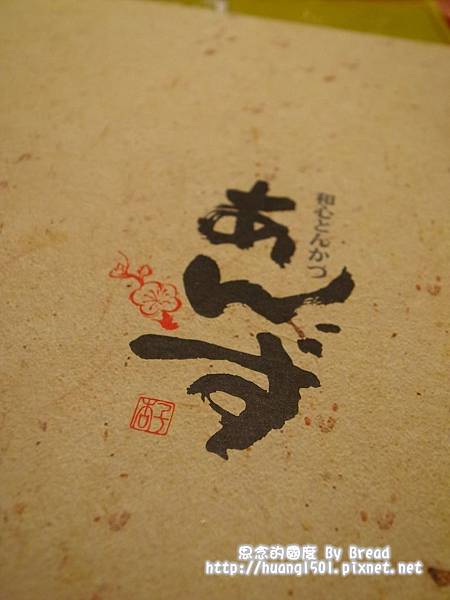 和心とんかつ
あんず
杏子
思念的國度 By Bread
http://huang1501.pixnet.net